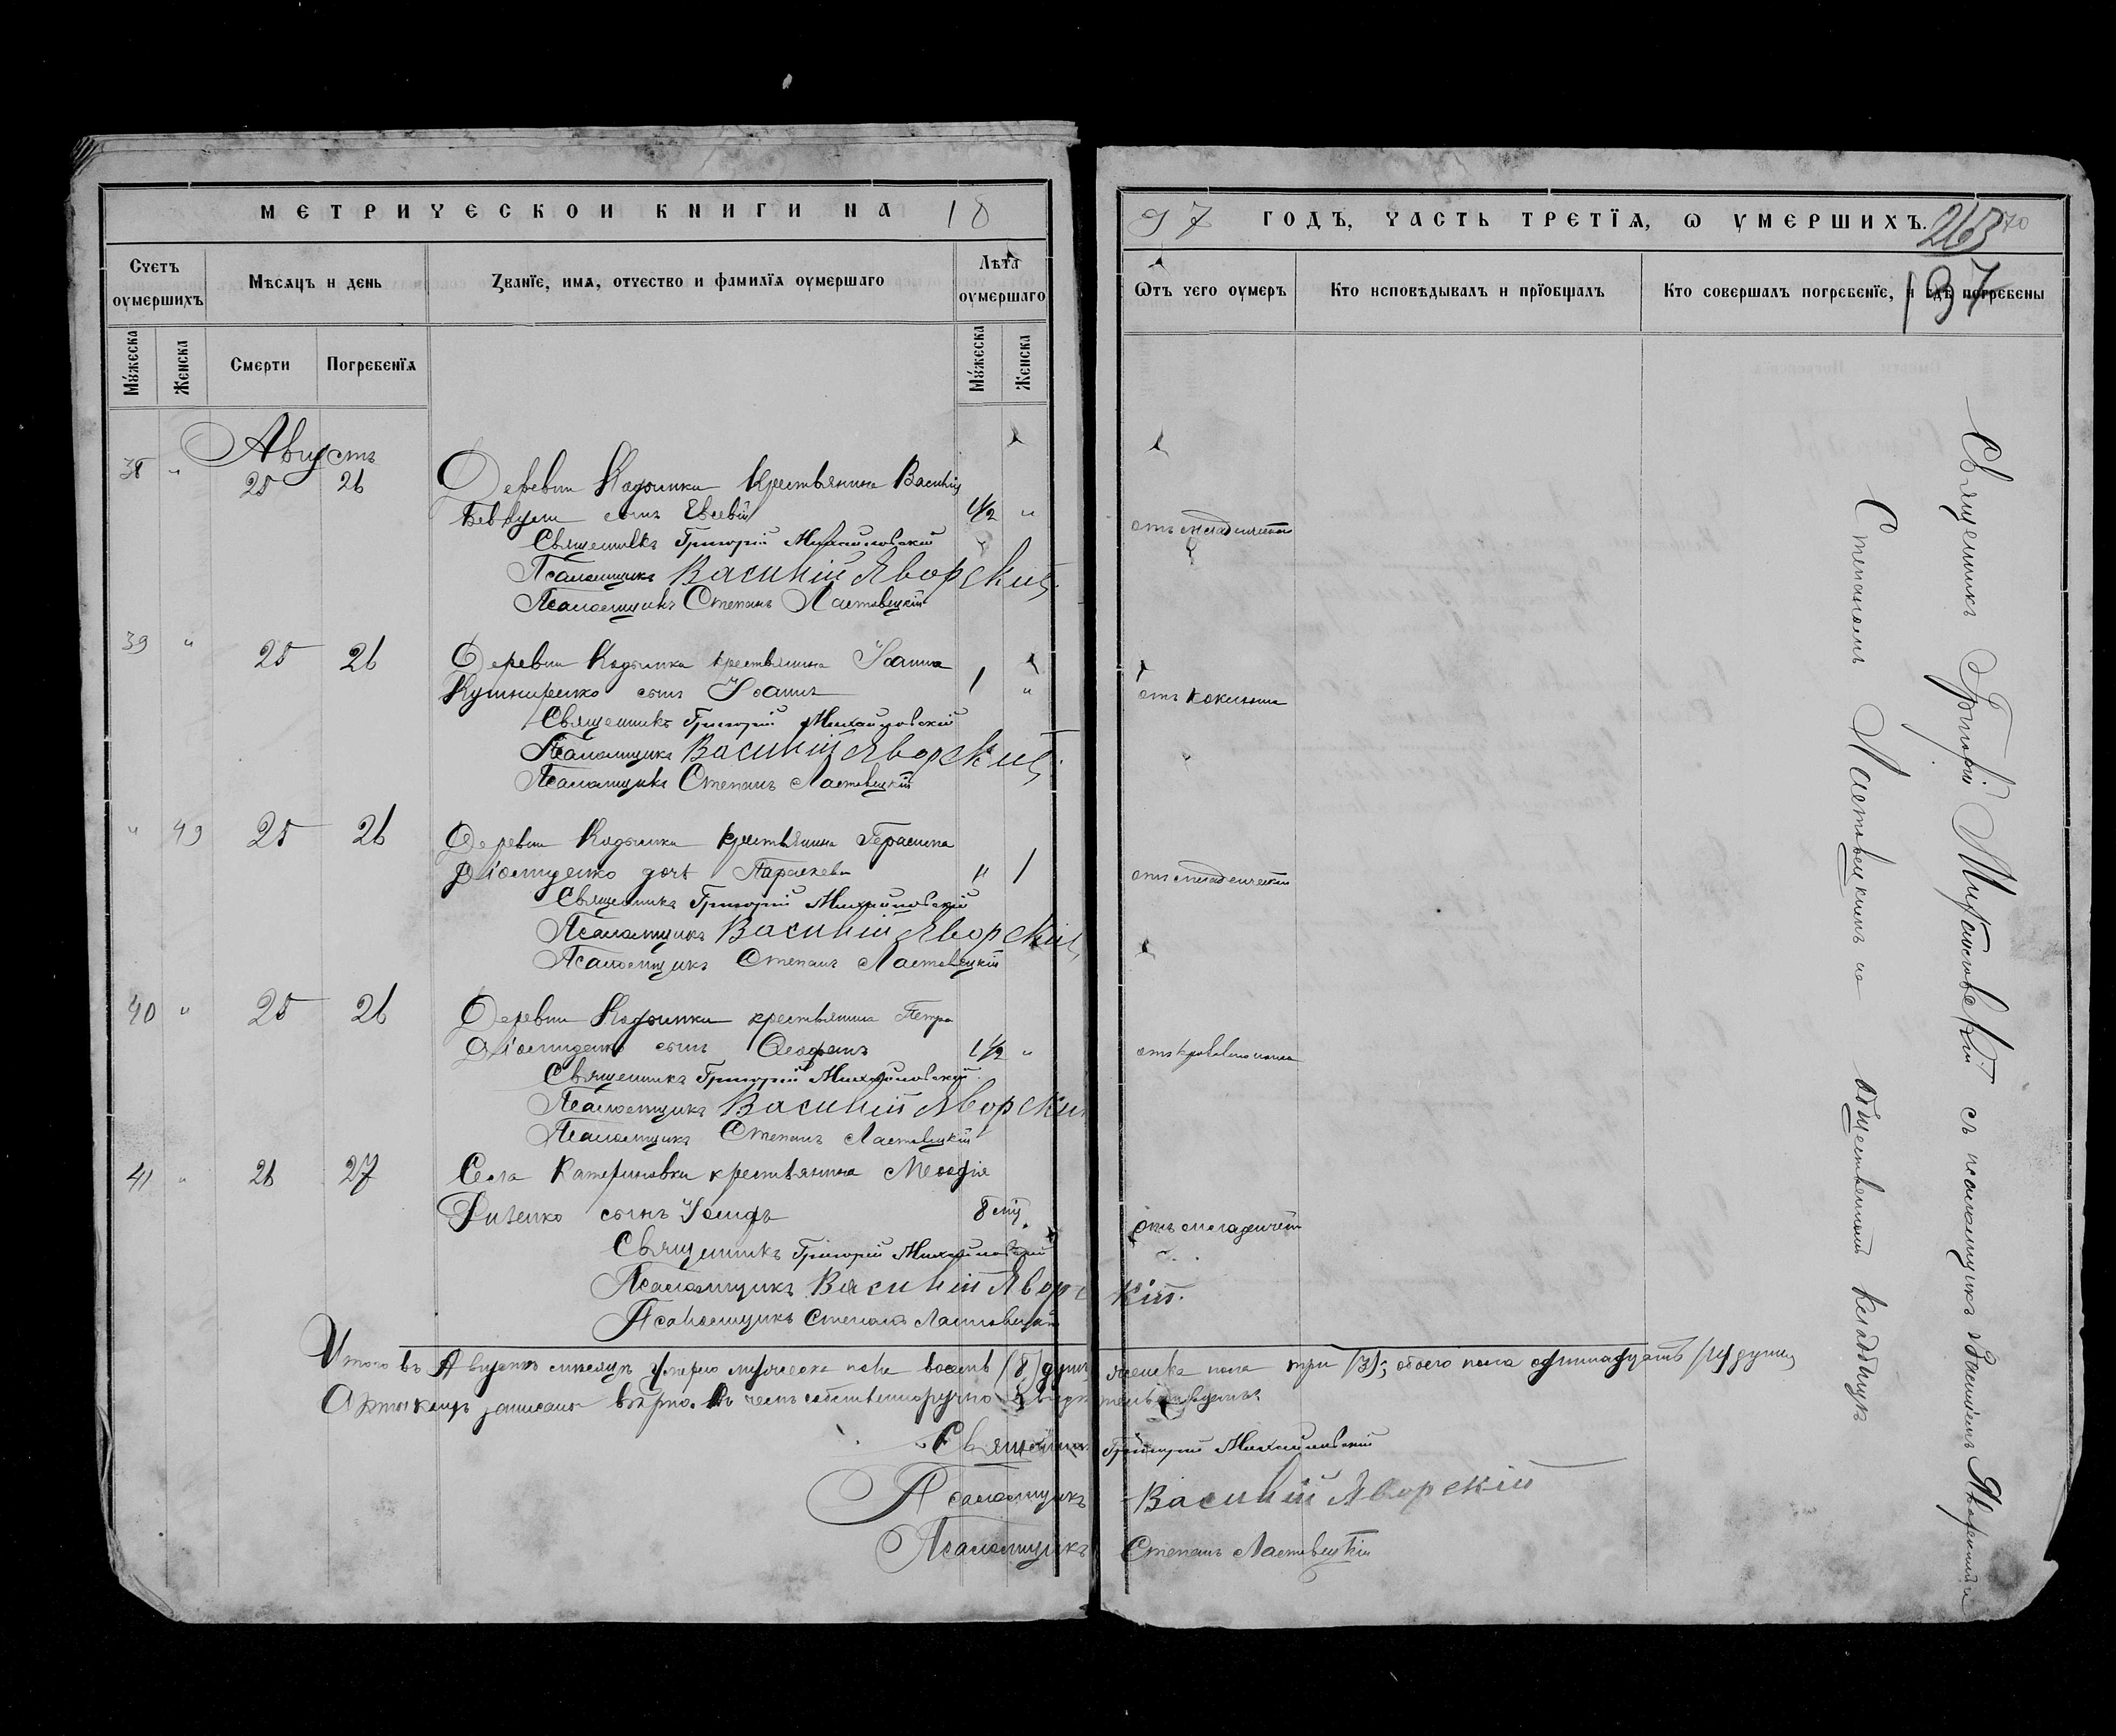 МЕТРИЧЕСКОЙ КНИГИ НА 18
Счетъ оумершихъ
Мѣсяцъ и день
Званїе, имя, отчество и фамилїя оумершаго
Лѣта оумершаго
Мужеска
Женска
Смерти
Погребенїя
Мужеска
Женска
Августъ
38 " 25 26 Деревни Кадымки крестьянина Василія
сынъ Евсевій 1 1/2 "
Священникъ Григорій Михайловскій
Псаломщикъ Василій Яворскій
Псаломщикъ Степанъ Ластовецкій
39 " 25 26 Деревни Кадымки крестьянина Іоанна
Кушниренко сынъ Іоаннъ 1 "
Священникъ Григорій Михайловскій
Псаломщикъ Василій Яворскій
Псаломщикъ Степанъ Ластовецкій
" 49 25 26 Деревни Кадымки крестьянина Герасима
дочь Параскева " 1
Священникъ Григорій Михайловскій
Псаломщикъ Василій Яворскій
Псаломщикъ Степанъ Ластовецкій
40 " 25 26 Деревни Кадымки крестьянина Петра
сынъ Ѳеофанъ 1 1/2 "
Священникъ Григорій Михайловскій
Псаломщикъ Василій Яворскій
Псаломщикъ Степанъ Ластовецкій
41 " 26 27 Села Катериновки крестьянина Меѳодія
сынъ 8 мѣ.
Священникъ Григорій Михайловскій
Псаломщикъ Василій Яворскій
Псаломщикъ Степанъ Ластовецкій
Итого въ Августѣ мѣсяцѣ умерло мужеска пола восемь (8) душъ женска пола три (3); обоего пола одиннадцать (11) душъ
записаны вѣрно. Въ чемъ собственноручно
Священникъ Григорій Михайловскій
Псаломщикъ Василій Яворскій
Псаломщикъ Степанъ Ластовецкій
97 ГОДЪ, ЧАСТЬ ТРЕТЇЯ, Ѡ УМЕРШИХЪ.
263
70
137
Ѿтъ чего оумеръ
Кто исповѣдывалъ и прїобщалъ
Кто совершалъ погребенїе, и гдѣ погребены
отъ младенческой
отъ коклюша
отъ младенческой
отъ кроваваго поноса
отъ младенчес
Священникъ Григорій Михайловскій съ псаломщиками Василіемъ Яворскимъ и
Степаномъ Ластовецкимъ на общественномъ кладбищѣ